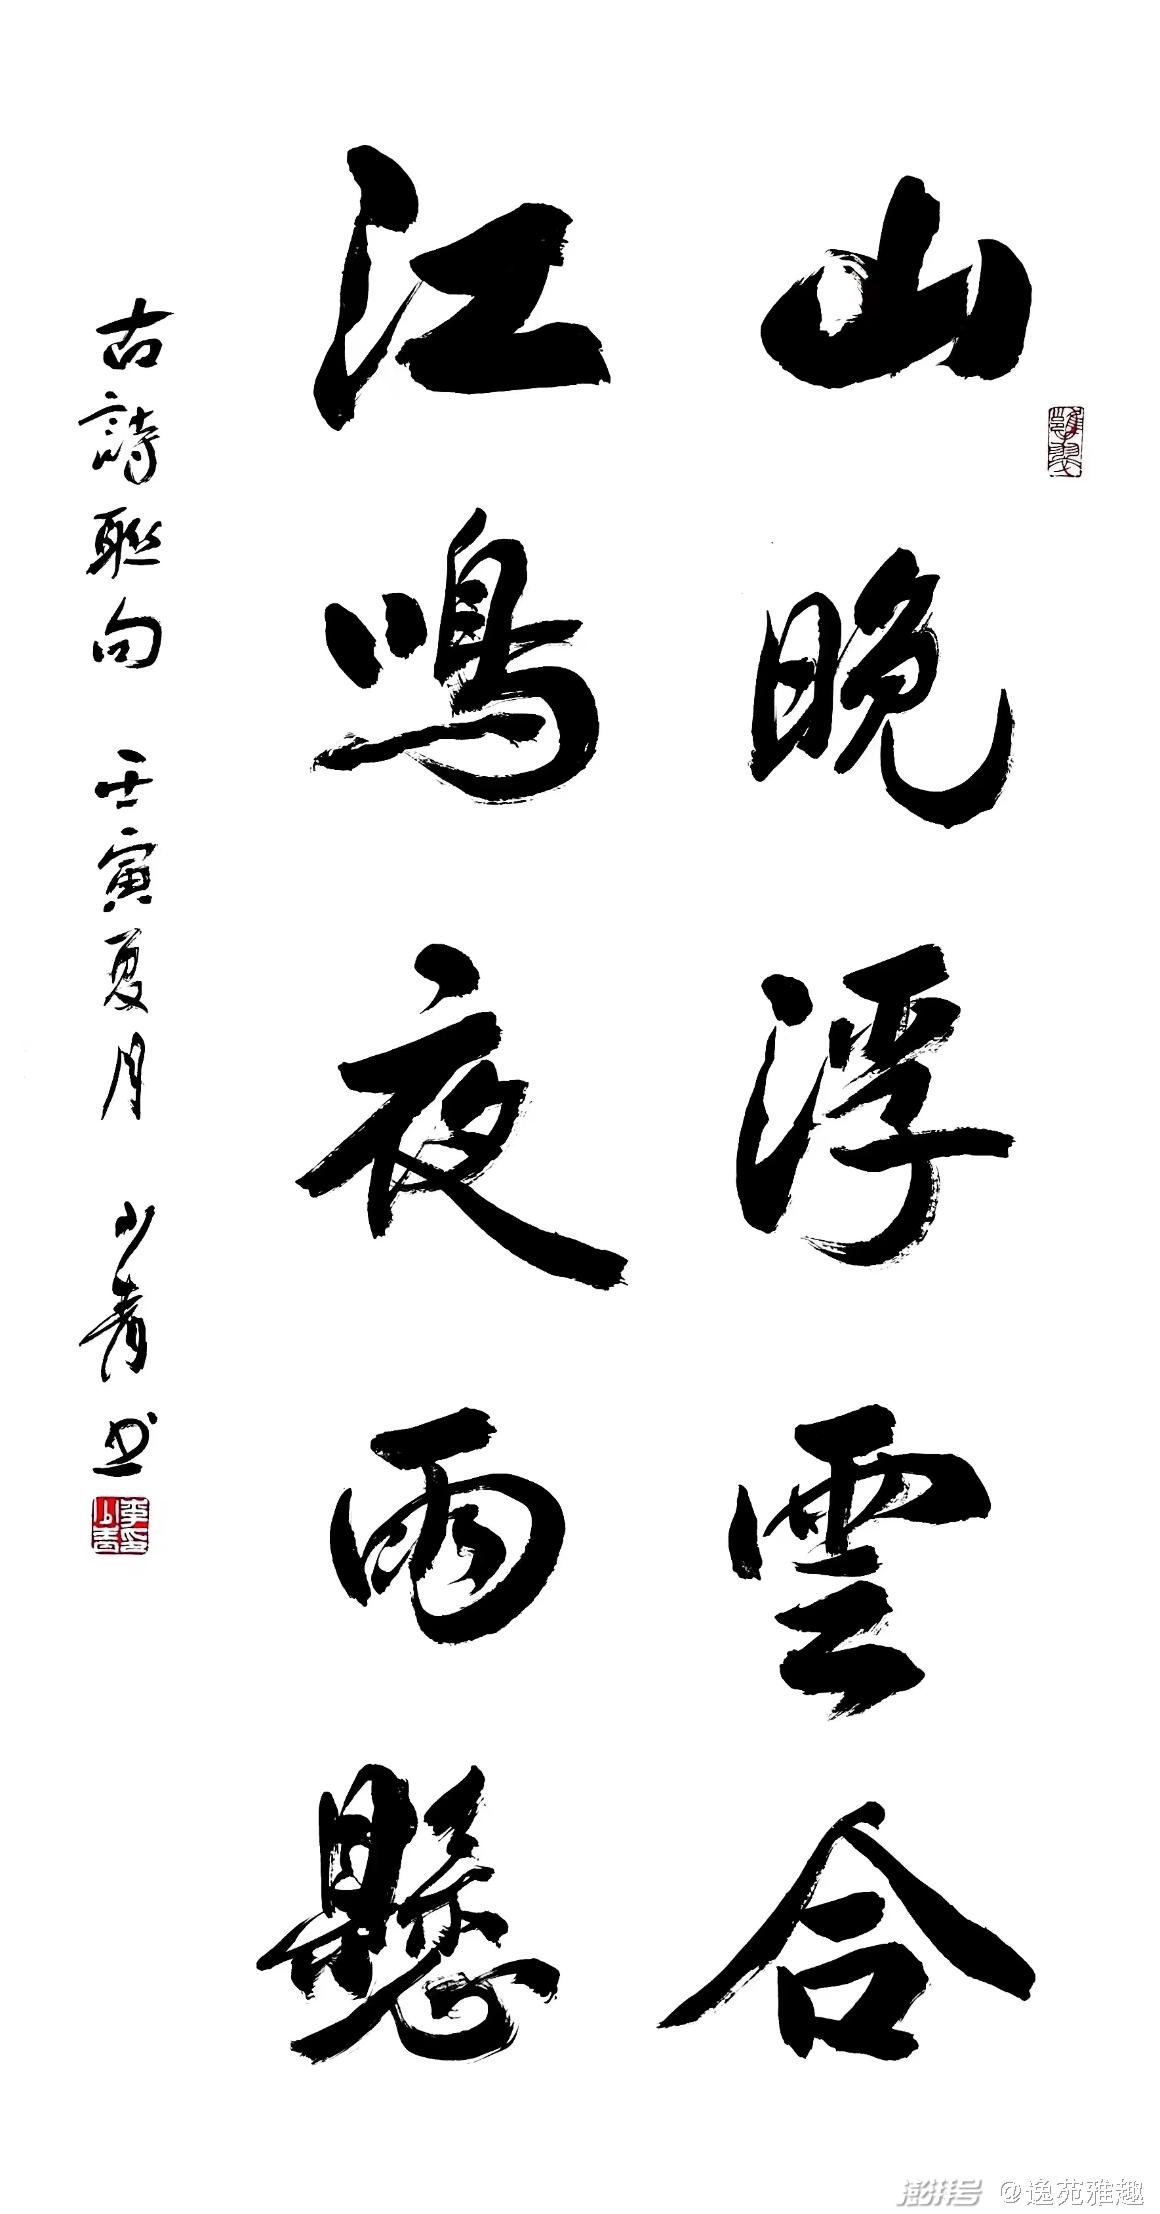 山晚浮雲合
江鳴夜雨懸
古詩聯句 壬寅夏月 少青书
澎湃号 @逸苑雅趣